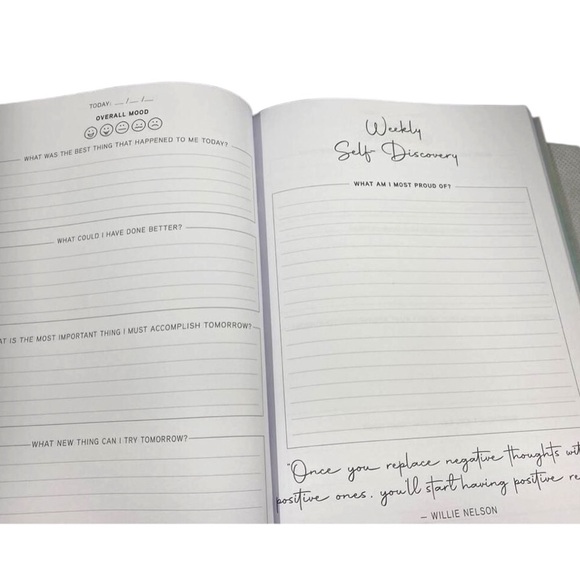 TODAY: __ /__ /__
OVERALL MOOD
WHAT WAS THE BEST THING THAT HAPPENED TO ME TODAY?
WHAT COULD I HAVE DONE BETTER?
IS THE MOST IMPORTANT THING I MUST ACCOMPLISH TOMORROW?
WHAT NEW THING CAN I TRY TOMORROW?
Weekly
Self Discovery
WHAT AM I MOST PROUD OF?
"Once you replace negative thoughts
positive ones, you'll start having positive
— WILLIE NELSON